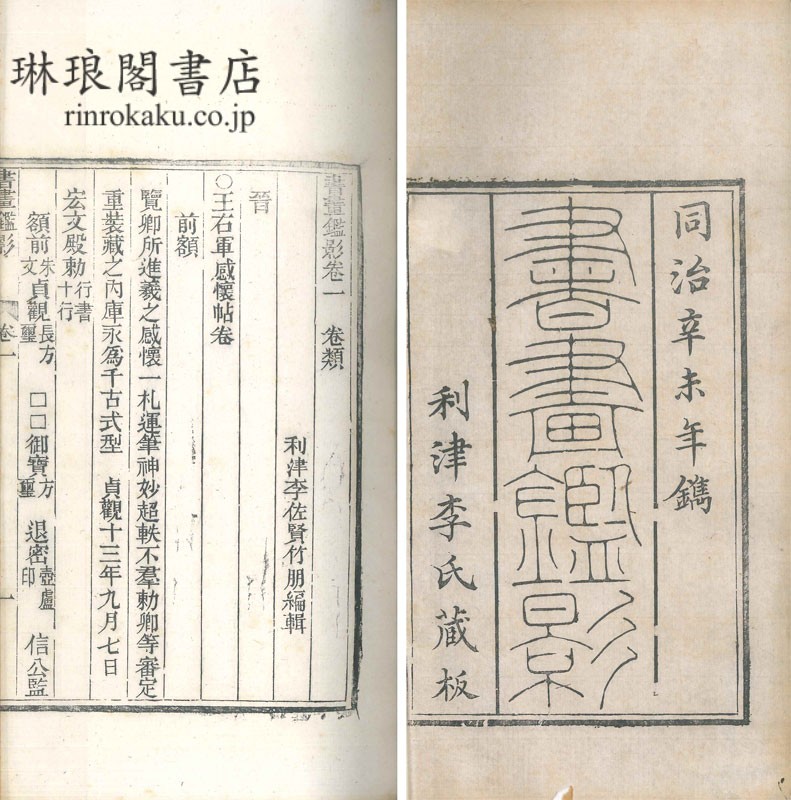 琳琅閣書店
rinrokaku.co.jp
同治辛未年鐫
書畫鑑影
利津李氏藏板
書畫鑑影卷一 卷類
利津李佐賢竹朋編輯
晉
○王右軍感懷帖卷
前額
覽卿所進羲之感懷一札運筆神妙超軼不羣勅卿等審定
重裝藏之內庫永爲千古式型 貞觀十三年九月七日
宏文殿勅行書十行
額前朱文貞觀長方璽 □□御寶方璽 退密壺盧印 信公監
書畫鑑影 卷一 一